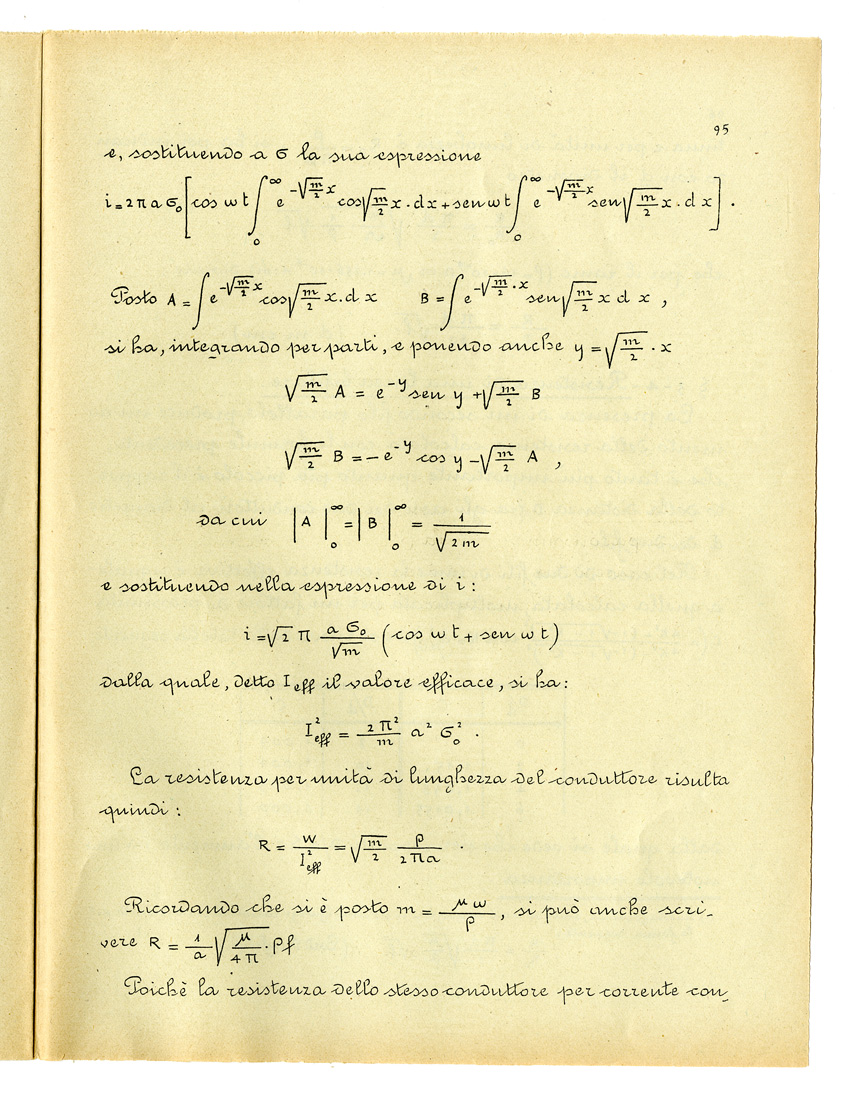 95
e, sostituendo a σ la sua espressione
i = 2πaσ₀[cos ωt ∫₀^∞ e^(-√(m/2) x) cos √(m/2) x · dx + sen ωt ∫₀^∞ e^(-√(m/2) x) sen √(m/2) x · dx] .
Posto A = ∫ e^(-√(m/2) x) cos √(m/2) x . d x B = ∫ e^(-√(m/2) · x) sen √(m/2) x d x ,
si ha, integrando per parti, e ponendo anche y = √(m/2) · x
√(m/2) A = e^(-y) sen y + √(m/2) B
√(m/2) B = - e^(-y) cos y - √(m/2) A ,
da cui |A|₀^∞ = |B|₀^∞ = 1/√(2m)
e sostituendo nella espressione di i :
i = √2 π (a σ₀)/√m (cos ωt + sen ωt)
dalla quale, detto I_eff il valore efficace, si ha :
I²_eff = 2π²/m a² σ₀² .
La resistenza per unità di lunghezza del conduttore risulta
quindi :
R = W/I²_eff = √(m/2) ρ/(2πa) .
Ricordando che si è posto m = μω/ρ , si può anche scri-
vere R = 1/a √(μ/4π) · ρf
Poichè la resistenza dello stesso conduttore per corrente con-